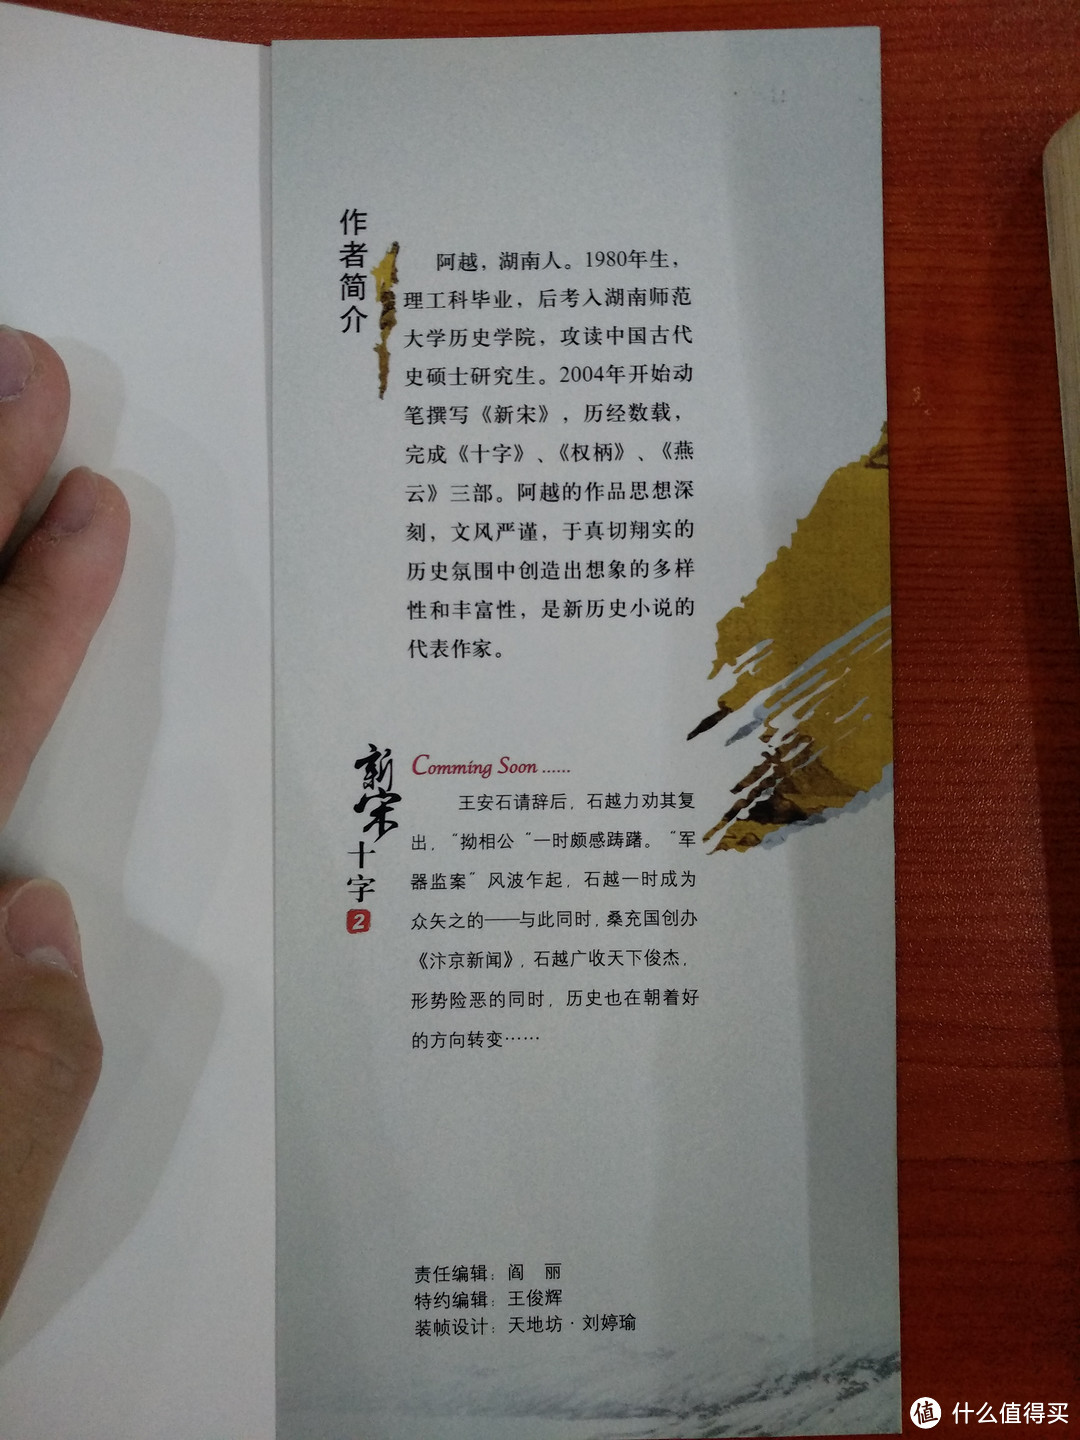 作者简介
阿越，湖南人。1980年生，
理工科毕业，后考入湖南师范
大学历史学院，攻读中国古代
史硕士研究生。2004年开始动
笔撰写《新宋》，历经数载，
完成《十字》、《权柄》、《燕
云》三部。阿越的作品思想深
刻，文风严谨，于真切翔实的
历史氛围中创造出想象的多样
性和丰富性，是新历史小说的
代表作家。
新宋
十字
2
Comming Soon ......
王安石请辞后，石越力劝其复
出，“拗相公“一时颇感踌躇。“军
器监案”风波乍起，石越一时成为
众矢之的——与此同时，桑充国创办
《汴京新闻》，石越广收天下俊杰，
形势险恶的同时，历史也在朝着好
的方向转变……
责任编辑：阎　丽
特约编辑：王俊辉
装帧设计：天地坊·刘婷瑜
值 什么值得买